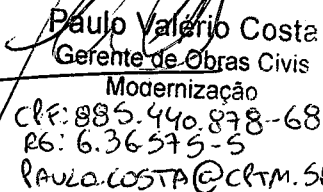 Paulo Valério Costa
Gerente de Obras Civis
Modernização
CPF: 885.440.878-68
RG: 6.36575-5
PAULO.COSTA@CPTM.S